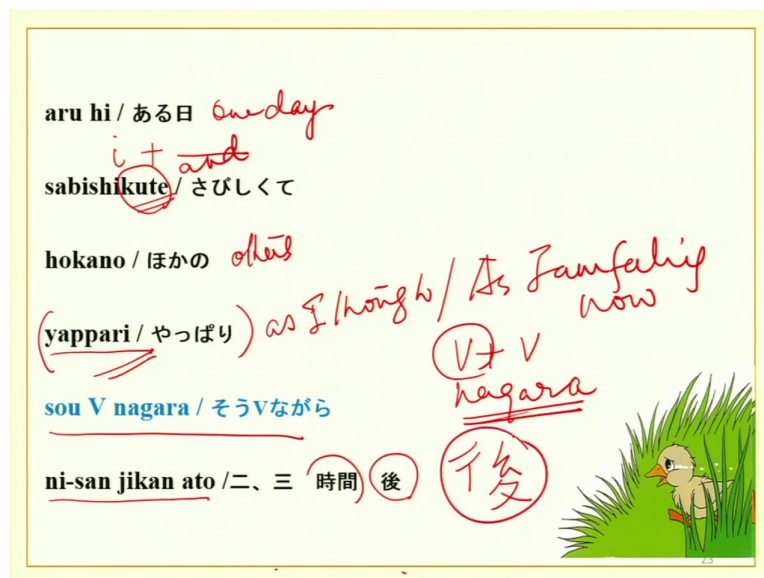 aru hi / ある日 one day
i + and
sabishikute / さびしくて
hokano / ほかの others
yappari / やっぱり as I thought / As I am feeling
now
V + V
nagara
sou V nagara / そうVながら
ni-san jikan ato /二、三 時間 後 後
23